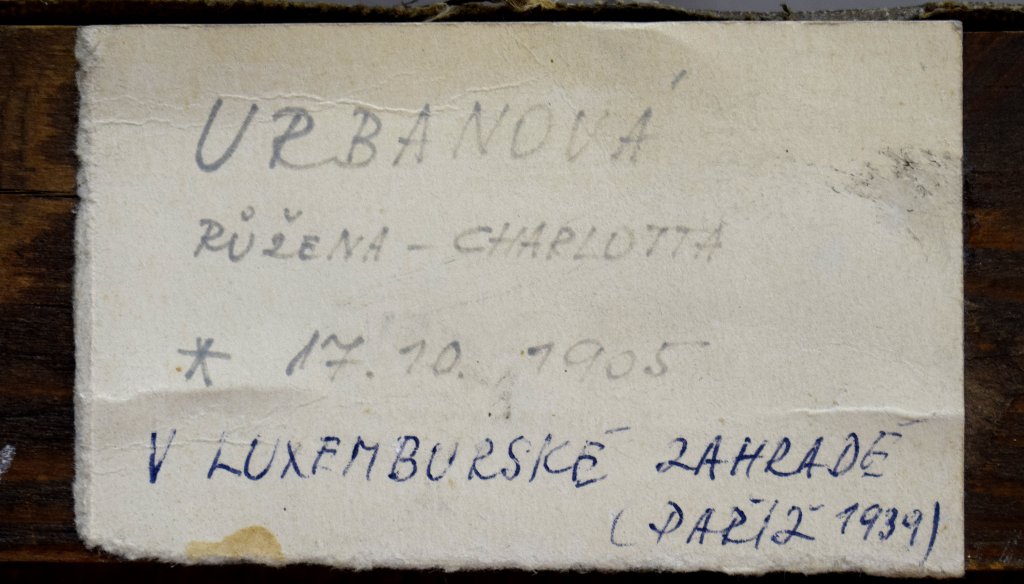 URBANOVÁ
RŮŽENA - CHARLOTTA
* 17. 10. 1905
V LUXEMBURSKÉ ZAHRADĚ
(PAŘÍŽ 1939)